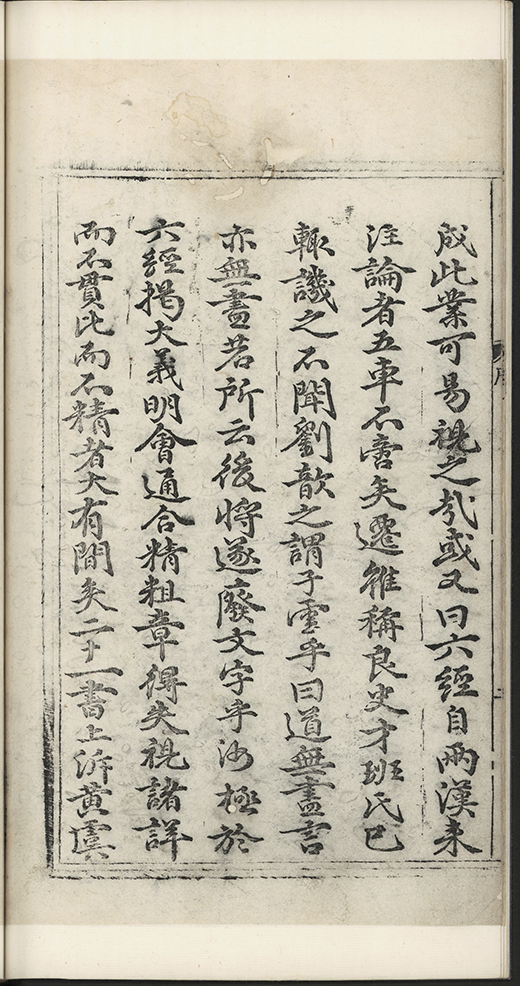 成此業可易視之㢤或又曰六經自兩漢来
注論者五車不啻矣遷雖稱良史才班氏已
輙譏之不聞劉歆之謂子雲乎曰道無盡言
亦無盡若所云後將遂廢文字乎沟極於
六經揭大義明會通合精粗章得失視諸詳
而不貫比而不精者大有間矣二十一書上泝黄虞
序